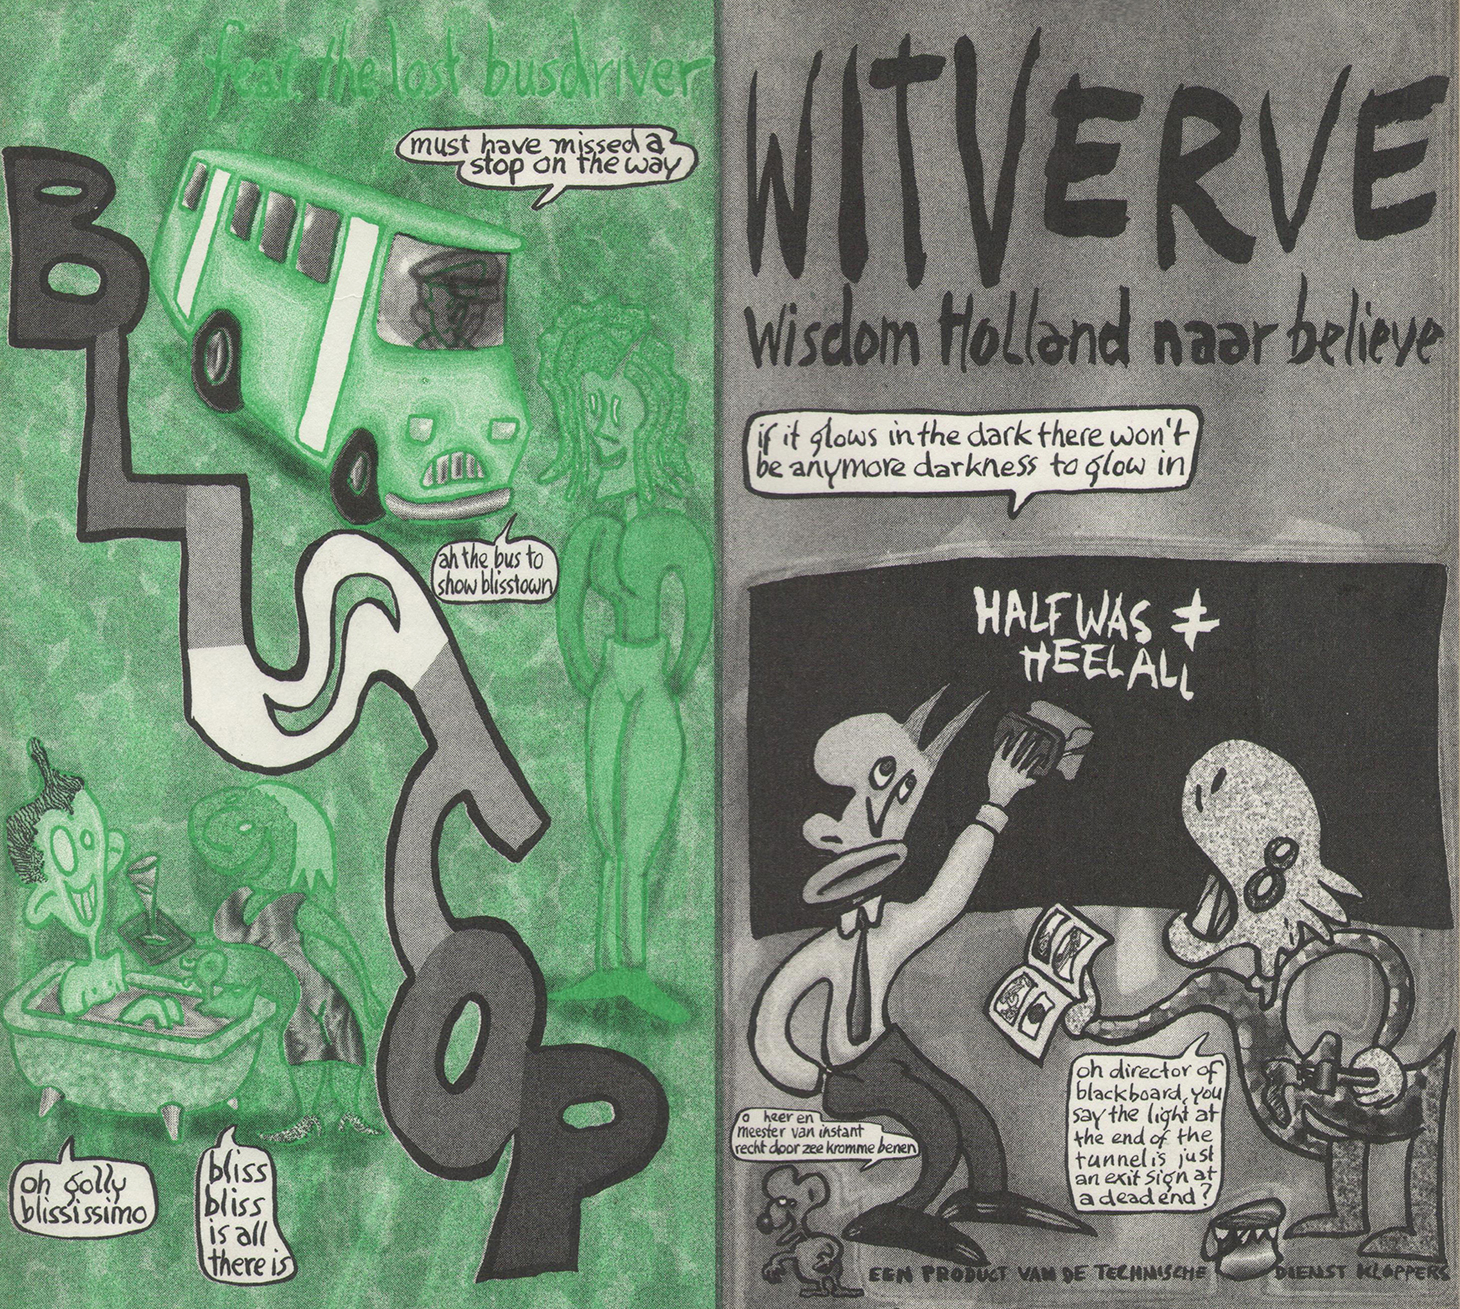 fear, the lost busdriver
must have missed a
stop on the way
BLUSTOP
ah the bus to
show blisstown
oh golly
blississimo
bliss
bliss
is all
there is
WITVERVE
Wisdom Holland naar believe
if it glows in the dark there won't
be anymore darkness to glow in
HALF WAS ≠
HEEL ALL
oh director of
blackboard, you
say the light at
the end of the
tunnel is just
an exit sign at
a dead end?
o heer en
meester van instant
recht door zee kromme benen
EEN PRODUCT VAN DE TECHNISCHE DIENST KLOPPERS